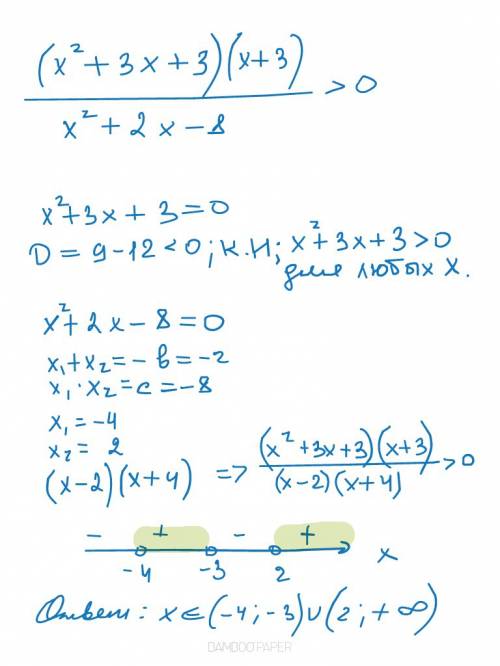 (x² + 3x + 3)(x + 3) / x² + 2x - 8 > 0
x² + 3x + 3 = 0
D = 9 - 12 < 0; К.Н; x² + 3x + 3 > 0
для любых x.
x² + 2x - 8 = 0
x₁ + x₂ = - b = -2
x₁ · x₂ = c = -8
x₁ = -4
x₂ = 2
(x-2)(x+4) => (x² + 3x + 3)(x + 3) / (x-2)(x+4) > 0
- + - +
-4 -3 2 x
Ответ: x ∈ (-4; -3) ∪ (2; +∞)
BAMBOOPAPER